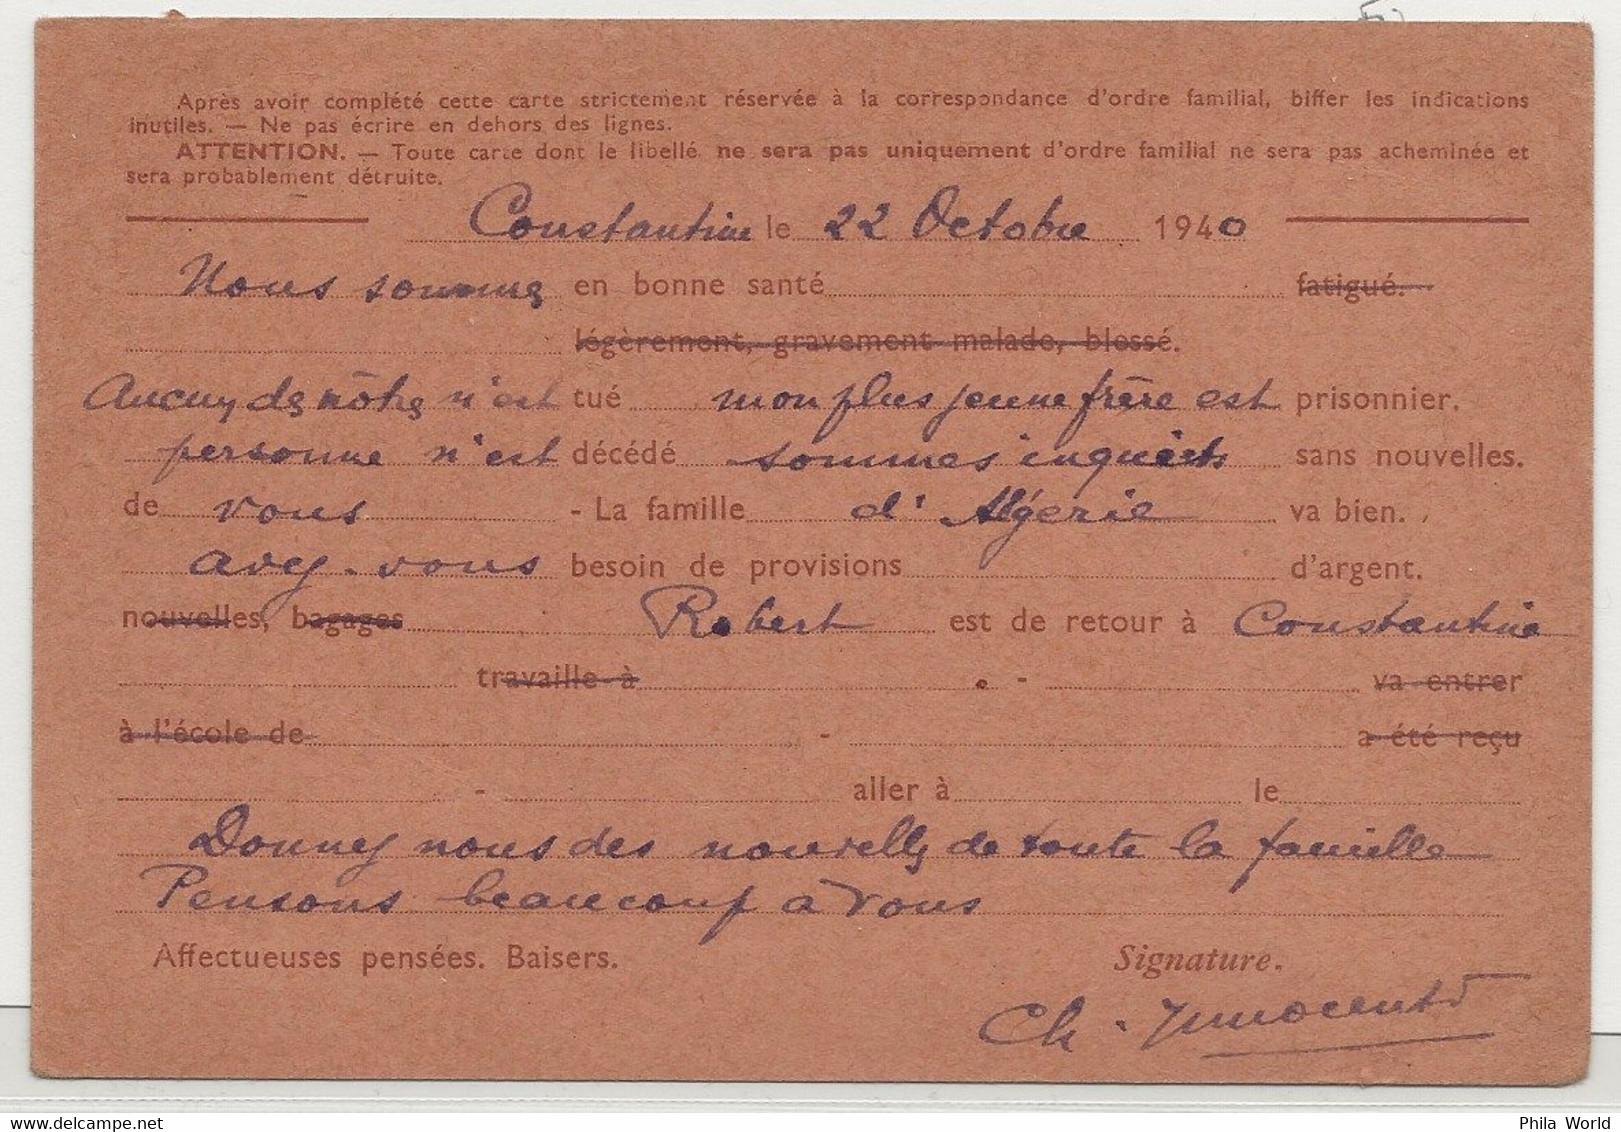 Après avoir complété cette carte strictement réservée à la correspondance d'ordre familial, biffer les indications
inutiles. — Ne pas écrire en dehors des lignes.
ATTENTION. — Toute carte dont le libellé ne sera pas uniquement d'ordre familial ne sera pas acheminée et
sera probablement détruite.
Constantine le 22 Octobre 1940
Nous sommes en bonne santé fatigué.
légèrement, gravement malade, blessé.
Aucun des nôtres n'est tué mon plus jeune frère est prisonnier.
personne n'est décédé sommes inquiets sans nouvelles.
de vous - La famille d'Algérie va bien.
avez-vous besoin de provisions d'argent.
nouvelles, bagages Robert est de retour à Constantine
travaille à - va entrer
à l'école de - a été reçu
- aller à le
Donnez nous des nouvelles de toute la famille
Pensons beaucoup à vous
Affectueuses pensées. Baisers. Signature.
Ch. Innocenti
Phila World